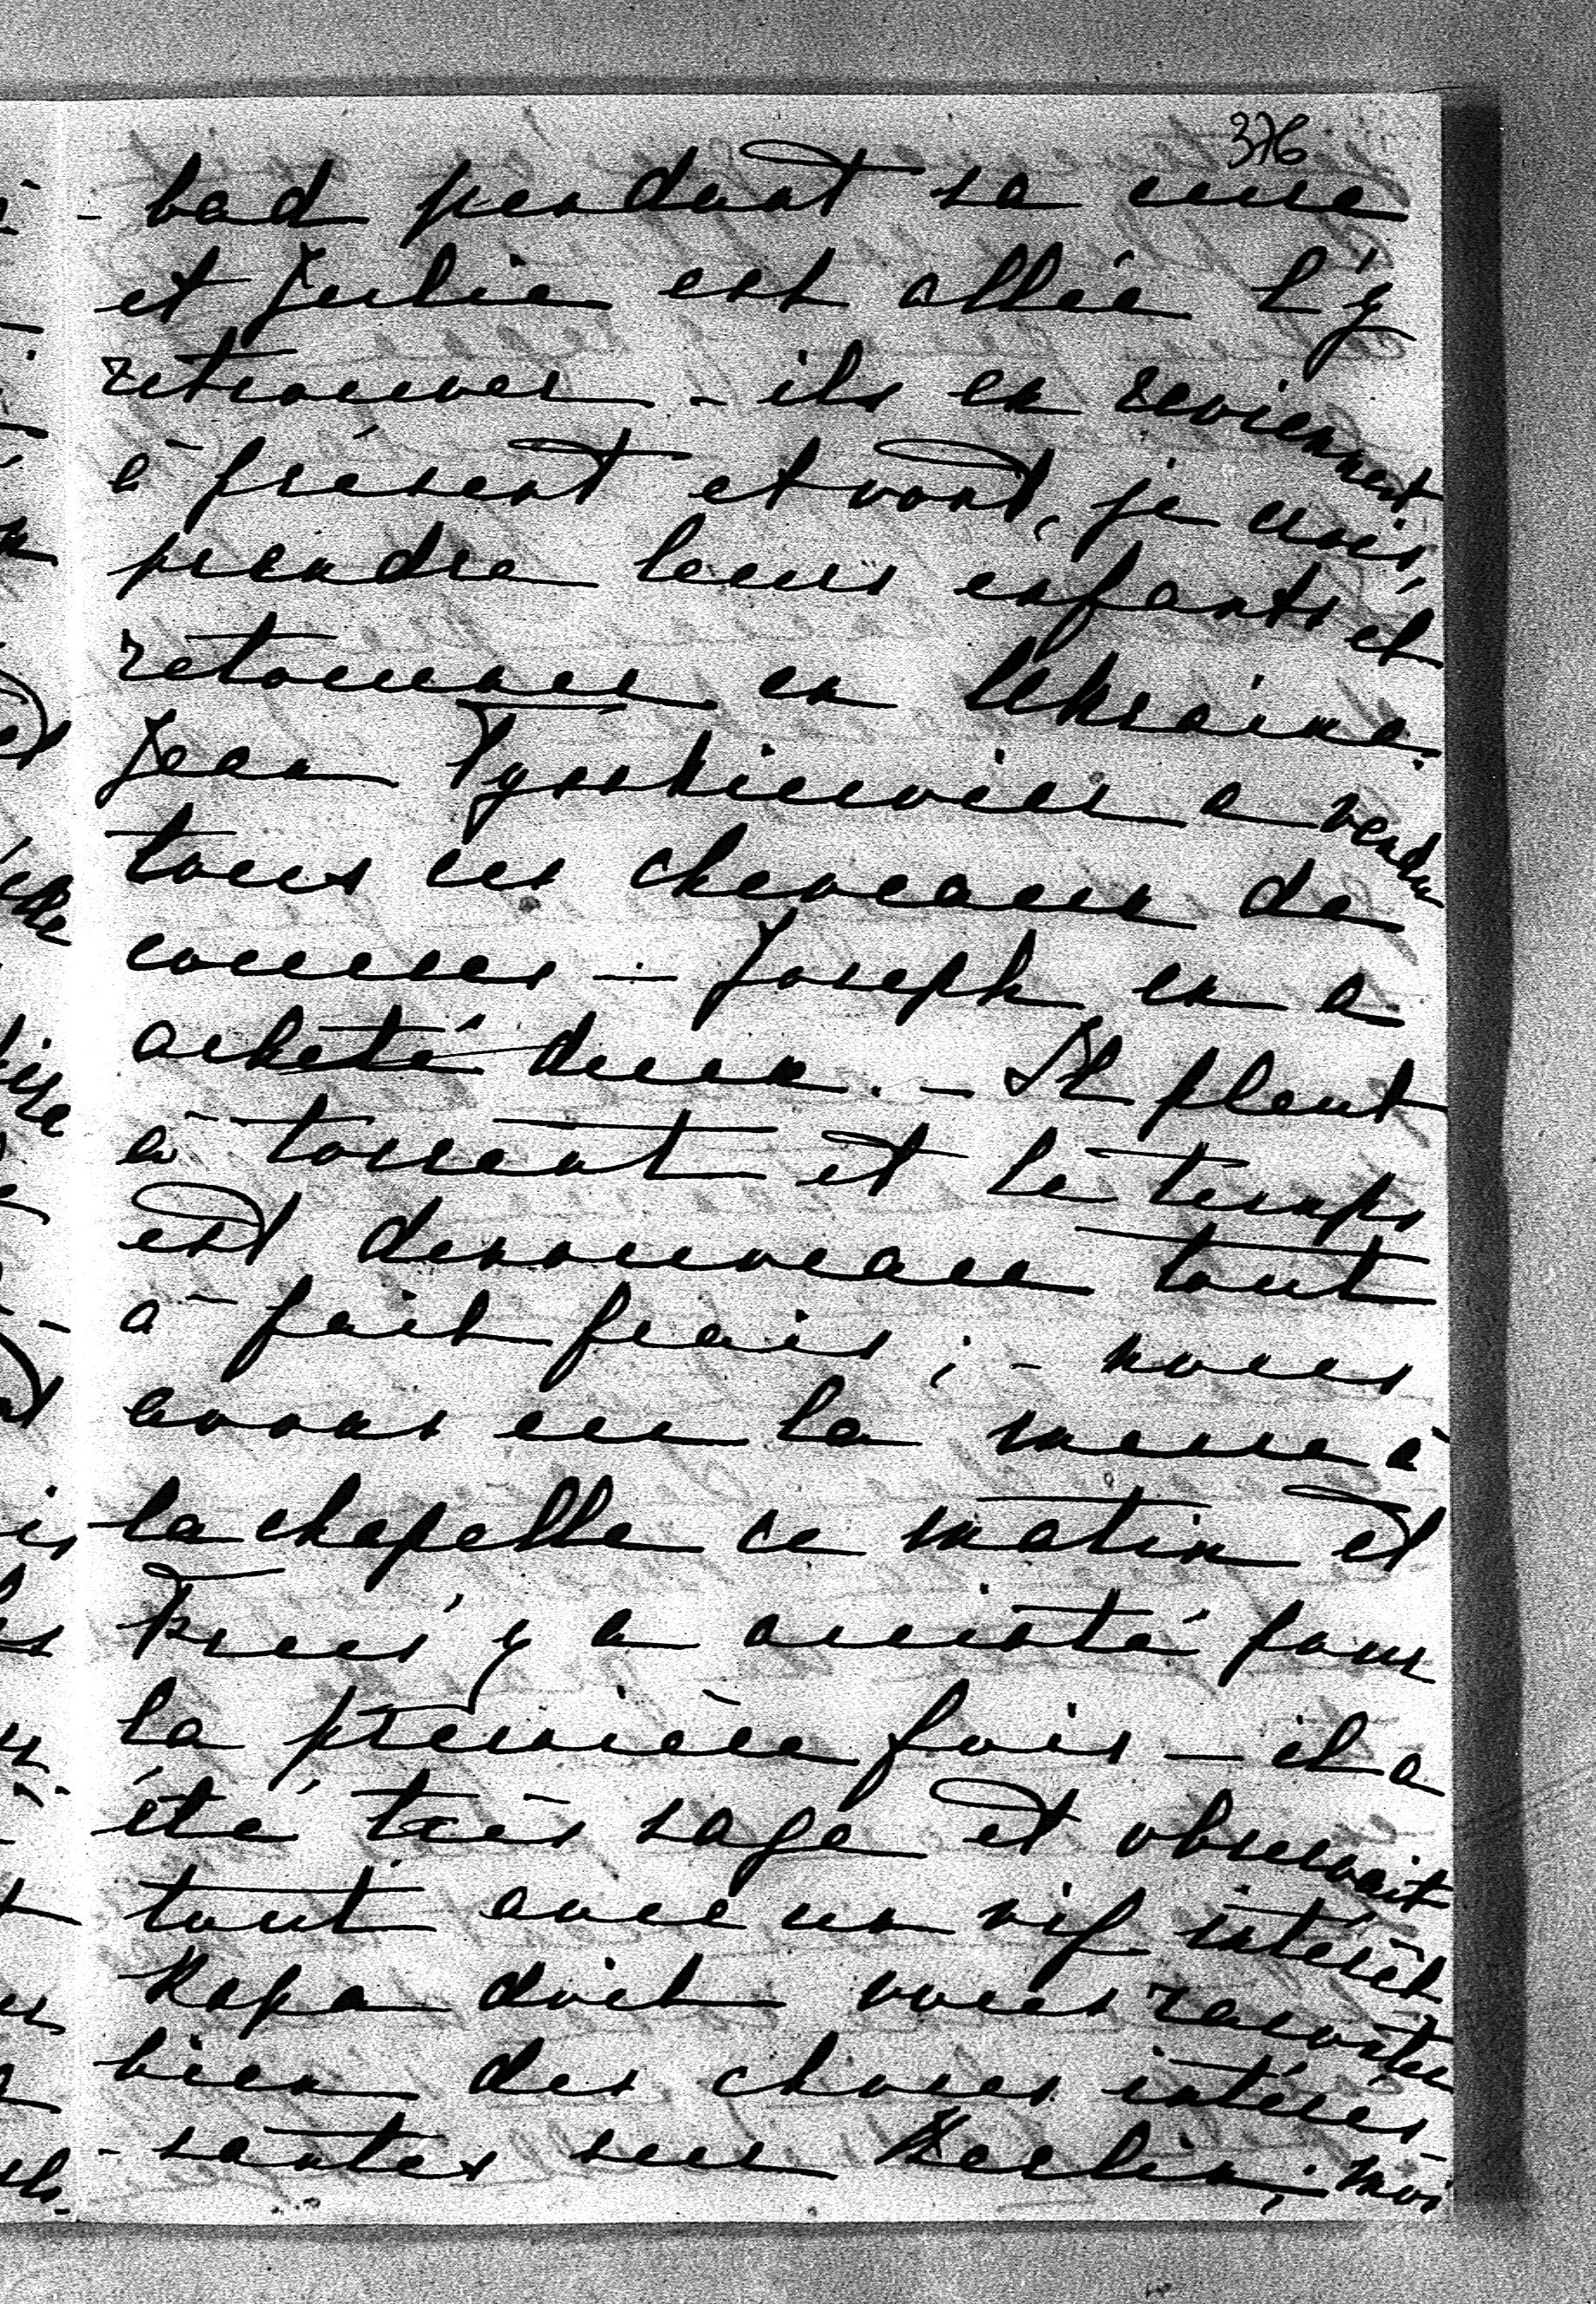 376
- bad pendant sa cure
et Julie est allée l'y
retrouver - ils en reviennent
à présent et vont, je crois,
prendre leurs enfants et
retourner en Ukraine.
Jean Tyszkiewicz a vendu
tous ces chevaux de
courses - Joseph en a
acheté deux. - Il pleut
à torrent et le temps
est denouveau tout
à fait frais ; - nous
avons eu la messe à
la chapelle ce matin et
y a assisté pour
la première fois - il a
été très sage et observait
tout avec un vif intérêt
Papa doit vous raconter
bien des choses intéres-
- santes sur Berlin ; moi